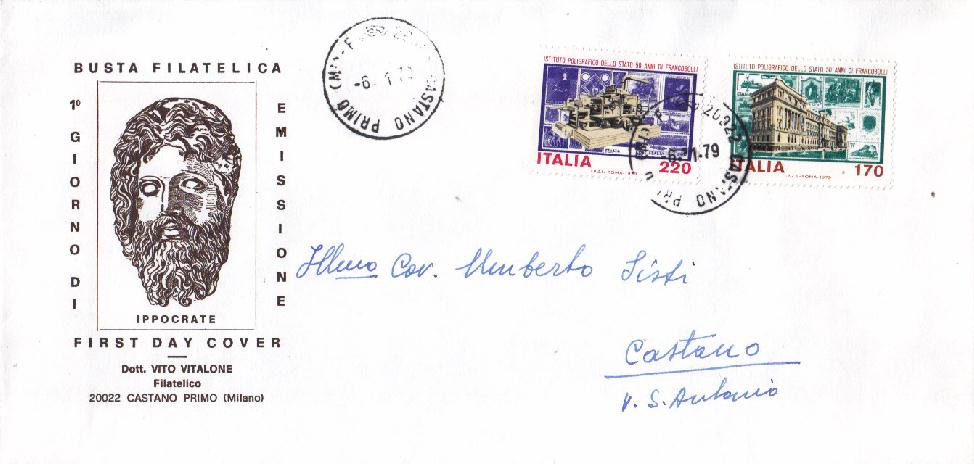 BUSTA FILATELICA
1º GIORNO DI
EMISSIONE
IPPOCRATE
FIRST DAY COVER
Dott. VITO VITALONE
Filatelico
20022 CASTANO PRIMO (Milano)
-6. 1 79
CASTANO PRIMO (MI)
IST. POLIGRAFICO DELLO STATO 50 ANNI DI FRANCOBOLLI
ITALIA
220
20022 CASTANO PRIMO
-6.-1.79
ISTITUTO POLIGRAFICO DELLO STATO 50 ANNI DI FRANCOBOLLI
ITALIA 170
Illmo Cav. Umberto Sisti
Castano
V. S. Antonio